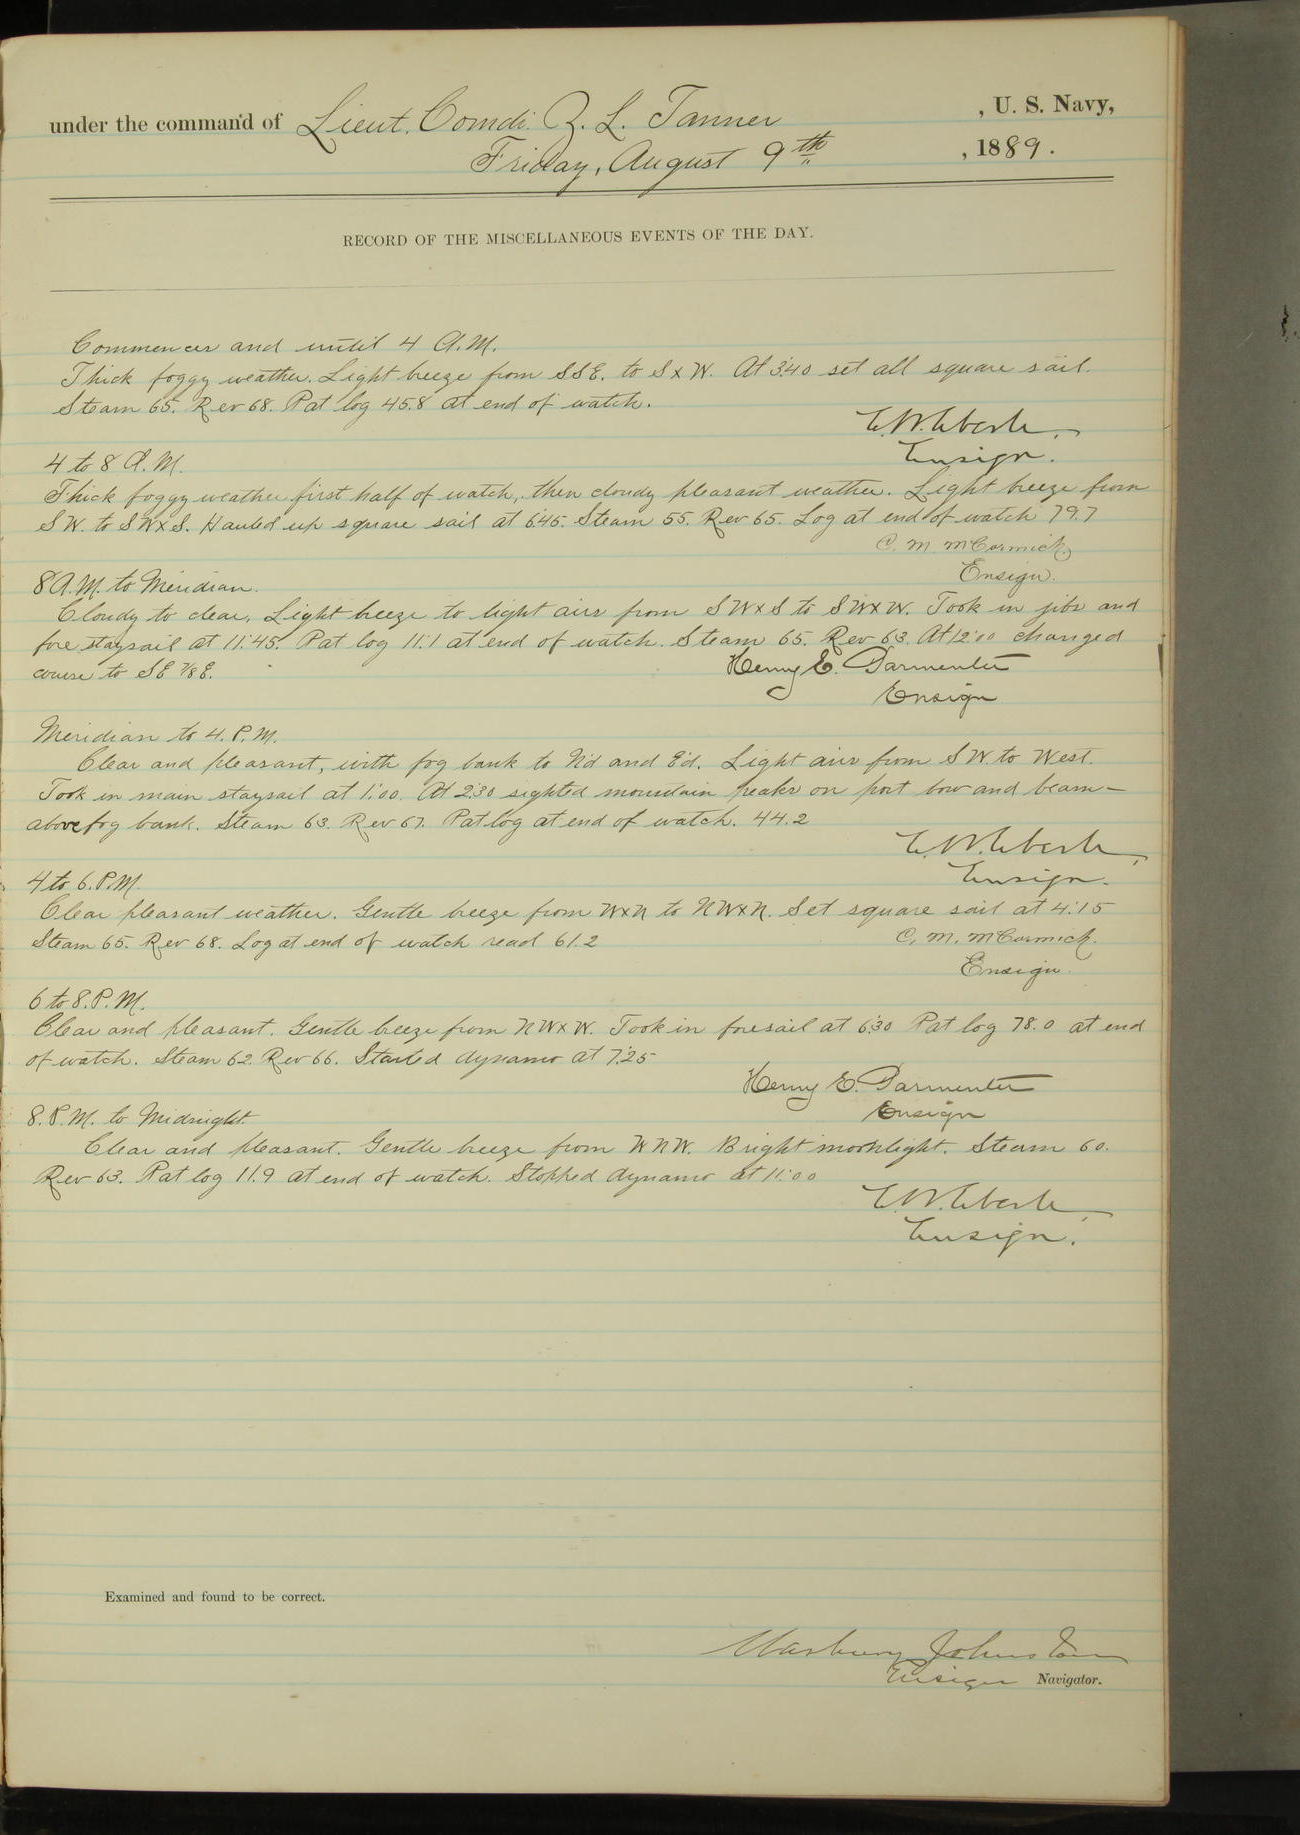 under the command of Lieut. Comdr. Z. L. Tanner , U. S. Navy,
Friday, August 9th , 1889.
RECORD OF THE MISCELLANEOUS EVENTS OF THE DAY.
Commences and until 4 A.M.
Thick foggy weather. Light breeze from SSE. to SxW. At 3:40 set all square sail.
Steam 65. Rev 68. Pat log 45.8 at end of watch.
E. W. Eberle.
Ensign.
4 to 8 A.M.
Thick foggy weather first half of watch, then cloudy pleasant weather. Light breeze from
SW. to SWxS. Hauled up square sail at 6:45. Steam 55. Rev 65. Log at end of watch 79.7
C. M. McCormick,
Ensign.
8 A.M. to Meridian.
Cloudy to clear. Light breeze to light airs from SWxS to SWxW. Took in jibs and
fore staysail at 11:45. Pat log 11.1 at end of watch. Steam 65. Rev 63. At 12:00 changed
course to SE 7/8 E.
Henry E. Parmenter
Ensign
Meridian to 4. P.M.
Clear and pleasant, with fog bank to N'd and E'd. Light airs from SW. to West.
Took in main staysail at 1:00. At 2:30 sighted mountain peaks on port bow and beam—
above fog bank. Steam 63. Rev 67. Pat log at end of watch. 44.2
E. W. Eberle,
Ensign.
4 to 6. P.M.
Clear pleasant weather. Gentle breeze from WxN to NWxN. Set square sail at 4:15
Steam 65. Rev 68. Log at end of watch read 61.2
C. M. McCormick.
Ensign.
6 to 8. P.M.
Clear and pleasant. Gentle breeze from NWxW. Took in foresail at 6:30 Pat log 78.0 at end
of watch. Steam 62. Rev 66. Started dynamo at 7:25
Henry E. Parmenter
Ensign
8. P.M. to Midnight.
Clear and pleasant. Gentle breeze from WNW. Bright moonlight. Steam 60.
Rev 63. Pat log 11.9 at end of watch. Stopped dynamo at 11:00
E. W. Eberle,
Ensign.
Examined and found to be correct.
Marbury Johnston
Ensign Navigator.